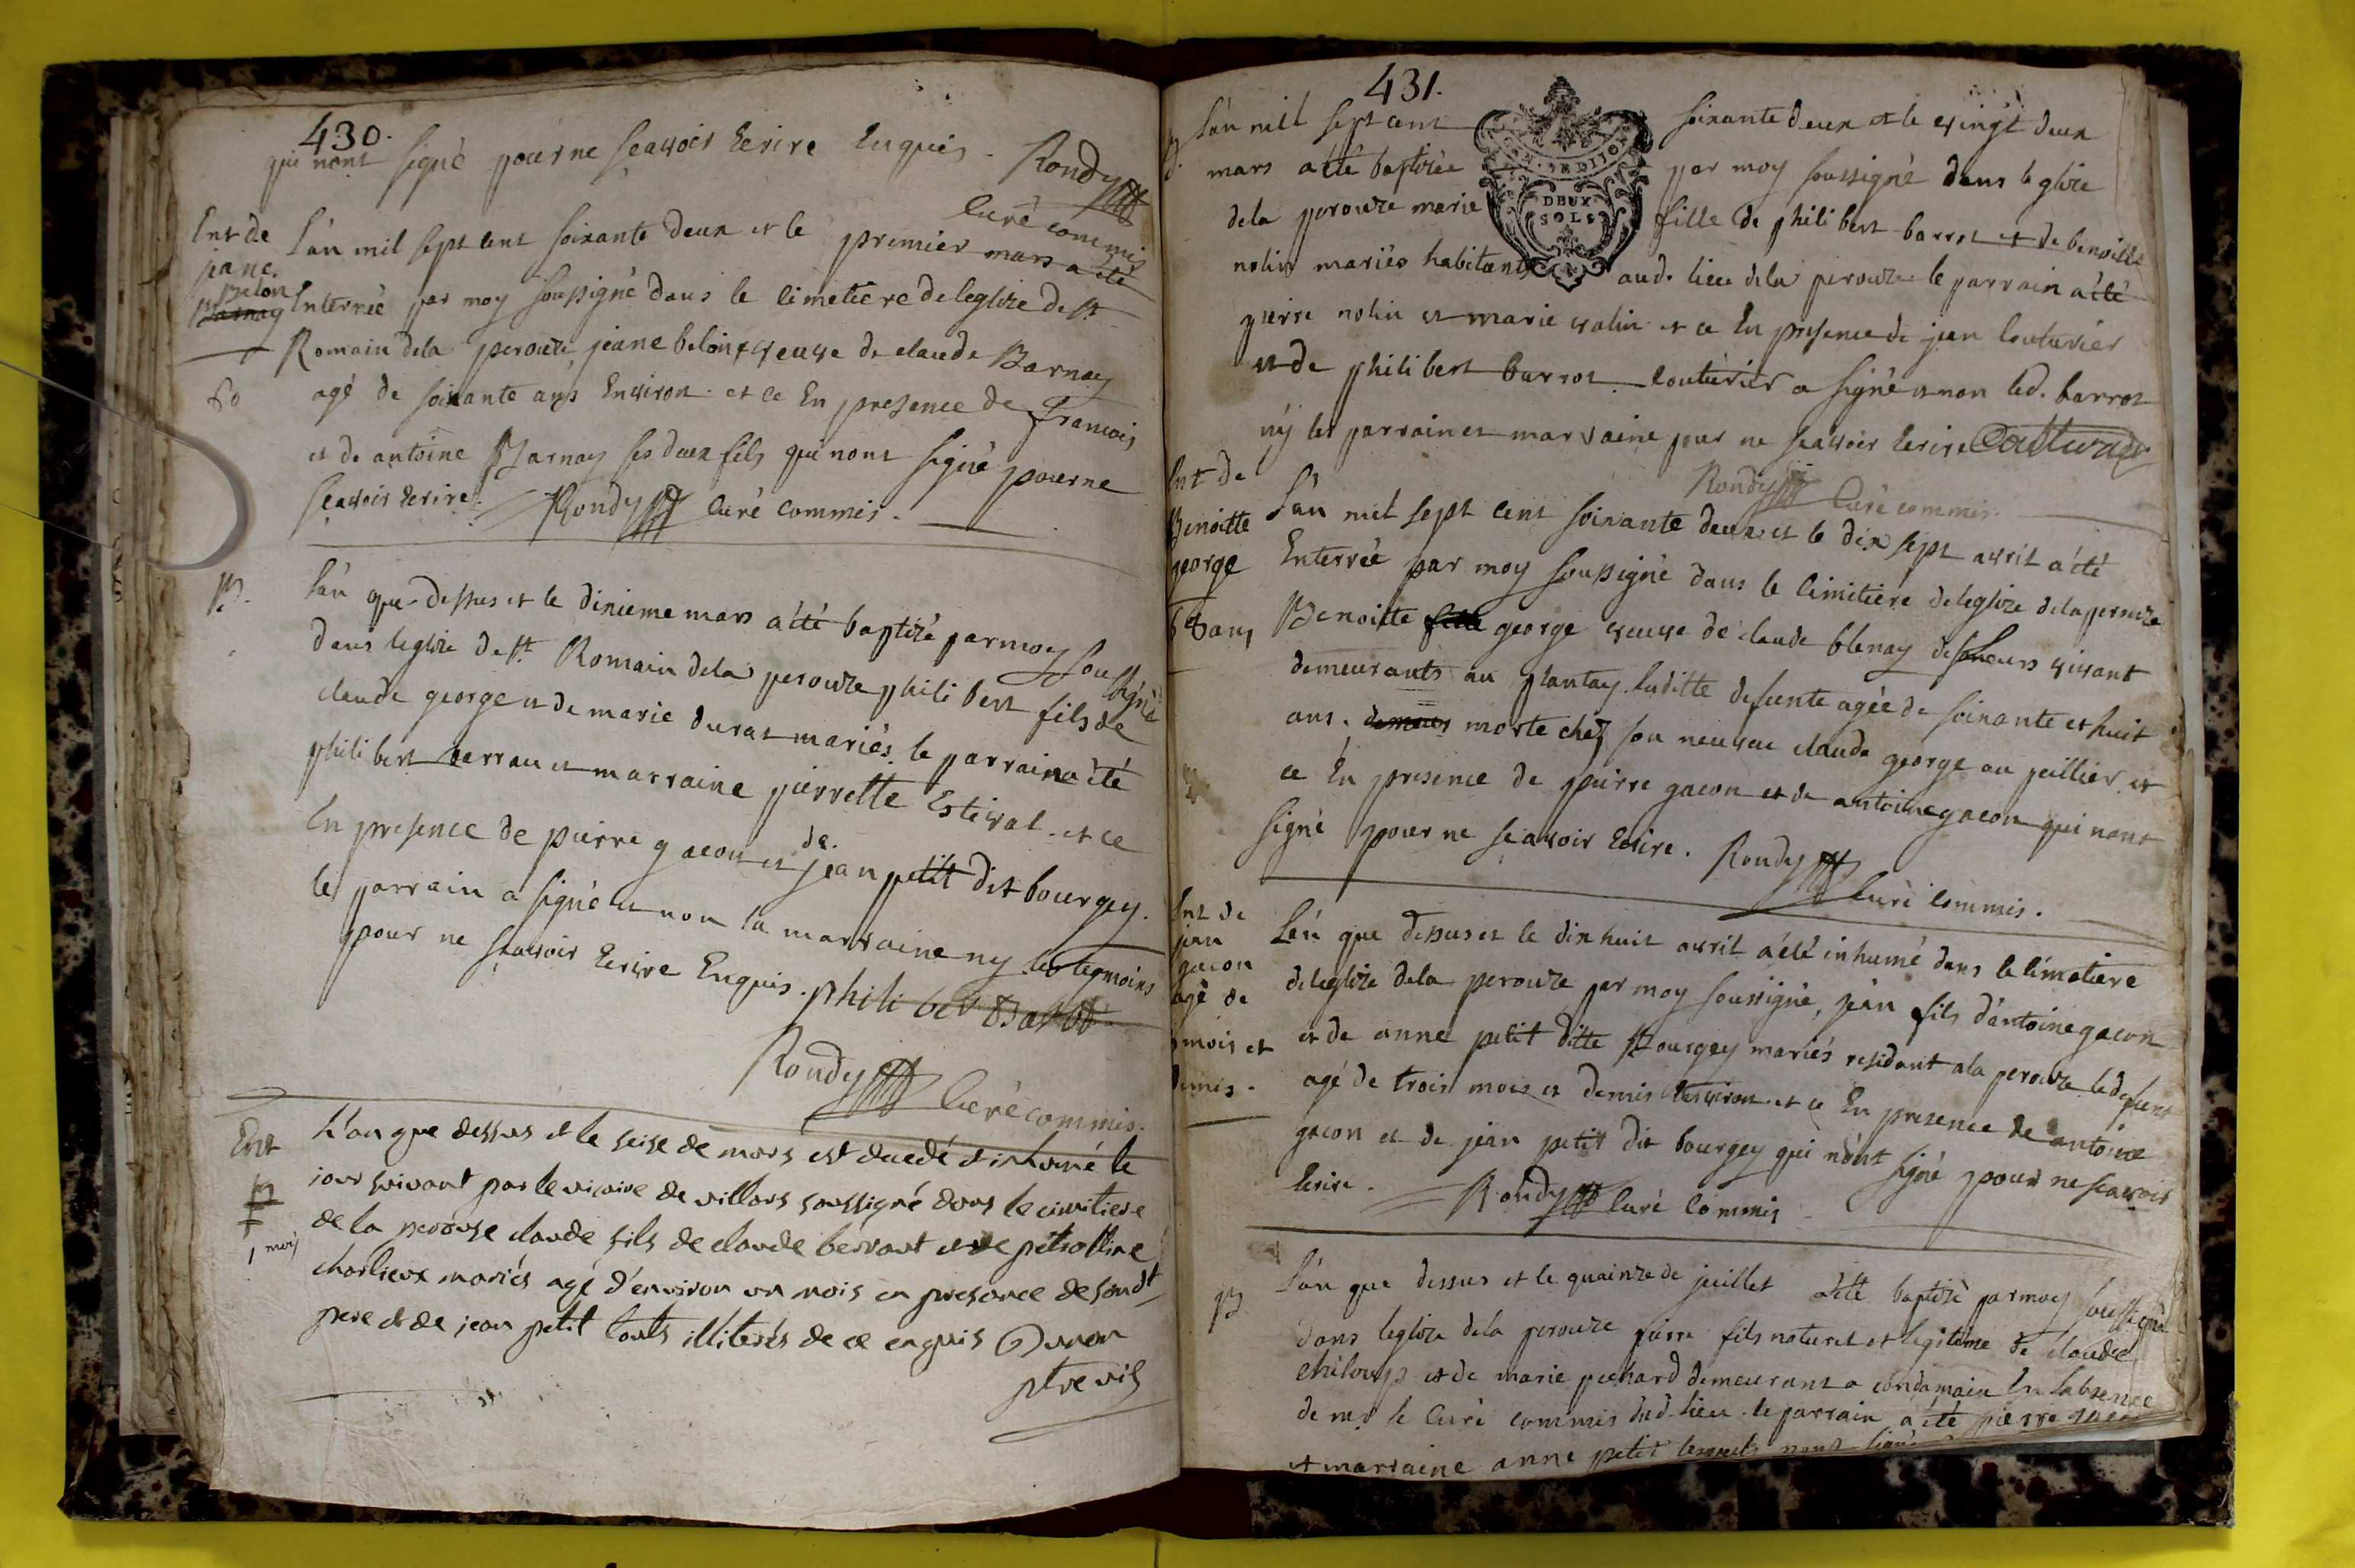 430.
qui nont signé pour ne sçavoir Ecrire Enquis. Rondy
Curé commis
Ent de
jane
Belon
Barnay
60
L'an mil sept cent soixante deux et le premier mars a été
Enterrée par moy soussigné dans le Cimetiere de leglize de st
Romain dela perouze jeane belon veuve de claude Barnay
agé de soixante ans Environ et ce En presence de francois
et de antoine Barnay ses deux fils qui nont signé pour ne
sçavoir Ecrire. Rondy Curé Commis.
B.
L'an que dessus et le dixieme mars a été baptizé par moy soussigné
dans leglize de st Romain dela perouze philibert fils de
claude george et de marie duras mariés le parrain a été
philibert barrau et marraine pierrette Estival et ce
En presence de pierre gacon et de jean petit dit bourgey.
le parrain a signé et non la marraine ny les temoins
pour ne sçavoir Ecrire Enquis. philiber Barot
Rondy Curé commis.
Ent
B
F
1 mois
L'an que dessus et le seise de mars est decedé et inhumé le
jour suivant par le vicaire de villars soussigné dans le cimitiere
de la perouse claude fils de claude berraut et de petrolline
charlieux mariés agé d'environ un mois en presance de sondt
pere et de jean petit touts illiterés de ce enquis
ptre vic
431.
GEN. DE DIJON
DEUX
SOLS
B.
L'an mill sept cent soixante deux et le vingt deux
mars a été baptizée par moy soussigné dans leglize
dela perouze marie fille de philibert barrot et de benoitte
nolin mariés habitants aud. lieu dela perouze le parrain a été
pierre nolin et marie valin et ce En presence de jean Couturier
et de philibert barrot. Couturier a signé et non led. barrot
ny les parrain et marraine pour ne sçavoir Ecrire Couturier
Rondy Curé commis.
Ent de
Benoitte
george
68 ans
L'an mil sept cent soixante deux et le dix sept avril a été
Enterrée par moy soussigné dans le Cimitiere de leglize dela perouze
Benoitte fille george veuve de claude blenay de leurs vivant
demeurants au plantay. laditte defunte agée de soixante et huit
ans. morte chez son neuveu claude george au peillier et
ce En presence de pierre gacon et de antoine gacon qui nont
signé pour ne sçavoir Ecrire. Rondy
Curé Commis.
Ent de
jean
gacon
agé de
3 mois et
demis.
L'an que dessus et le dix huit avril a été inhumé dans le Cimetiere
de leglize dela perouze par moy soussigné, jean fils d'antoine gacon
et de anne petit ditte Bourgey mariés residant ala perouze. le defunt
agé de trois mois et demis Environ et ce En presence de antoine
gacon et de jean petit dit bourgey qui n'ont signé pour ne sçavoir
Ecrire. Rondy Curé Commis
B
L'an que dessus et le quainze de juillet a été baptizé par moy soussigné
dans leglize dela perouze pierre fils naturel et legitime de claude
Chiloup et de marie pechard demeurant a condamain En labsence
de mr le Curé commis dud. lieu. le parrain a été pierre
et marraine anne petit lesquels nont signé